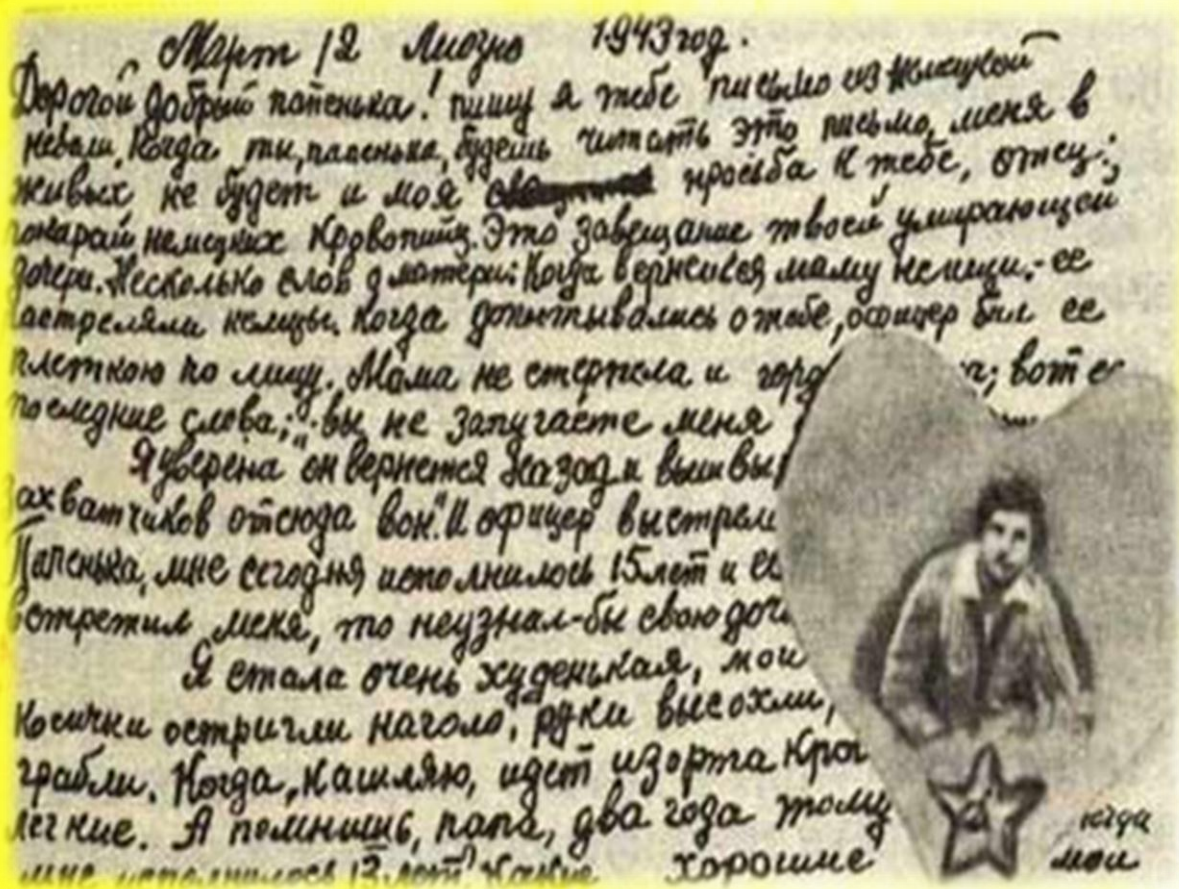 Март 12 Лиозно 1943 год.
Дорогой добрый папенька! пишу я тебе письмо из немецкой
неволи. Когда ты, папенька, будешь читать это письмо, меня в
живых не будет и моя просьба к тебе, отец:
покарай немецких кровопийц. Это завещание твоей умирающей
дочери. Несколько слов о матери: Когда вернешься, маму не ищи.- ее
расстреляли немцы. Когда допытывались о тебе, офицер бил ее
плеткою по лицу. Мама не стерпела и горд а; вот ее
последние слова; "вы не запугаете меня
Я уверена он вернется назад и вышвыр
захватчиков отсюда вон". И офицер выстрели
Папенька, мне сегодня исполнилось 15 лет и ес
встретил меня, то неузнал-бы свою доч
Я стала очень худенькая, мои
Косички остригли наголо, руки высохли,
грабли. Когда кашляю, идет изорта кров
легкие. А помнишь, папа, два года тому когда
мне исполнилось 13 лет? Какие хорошие мои